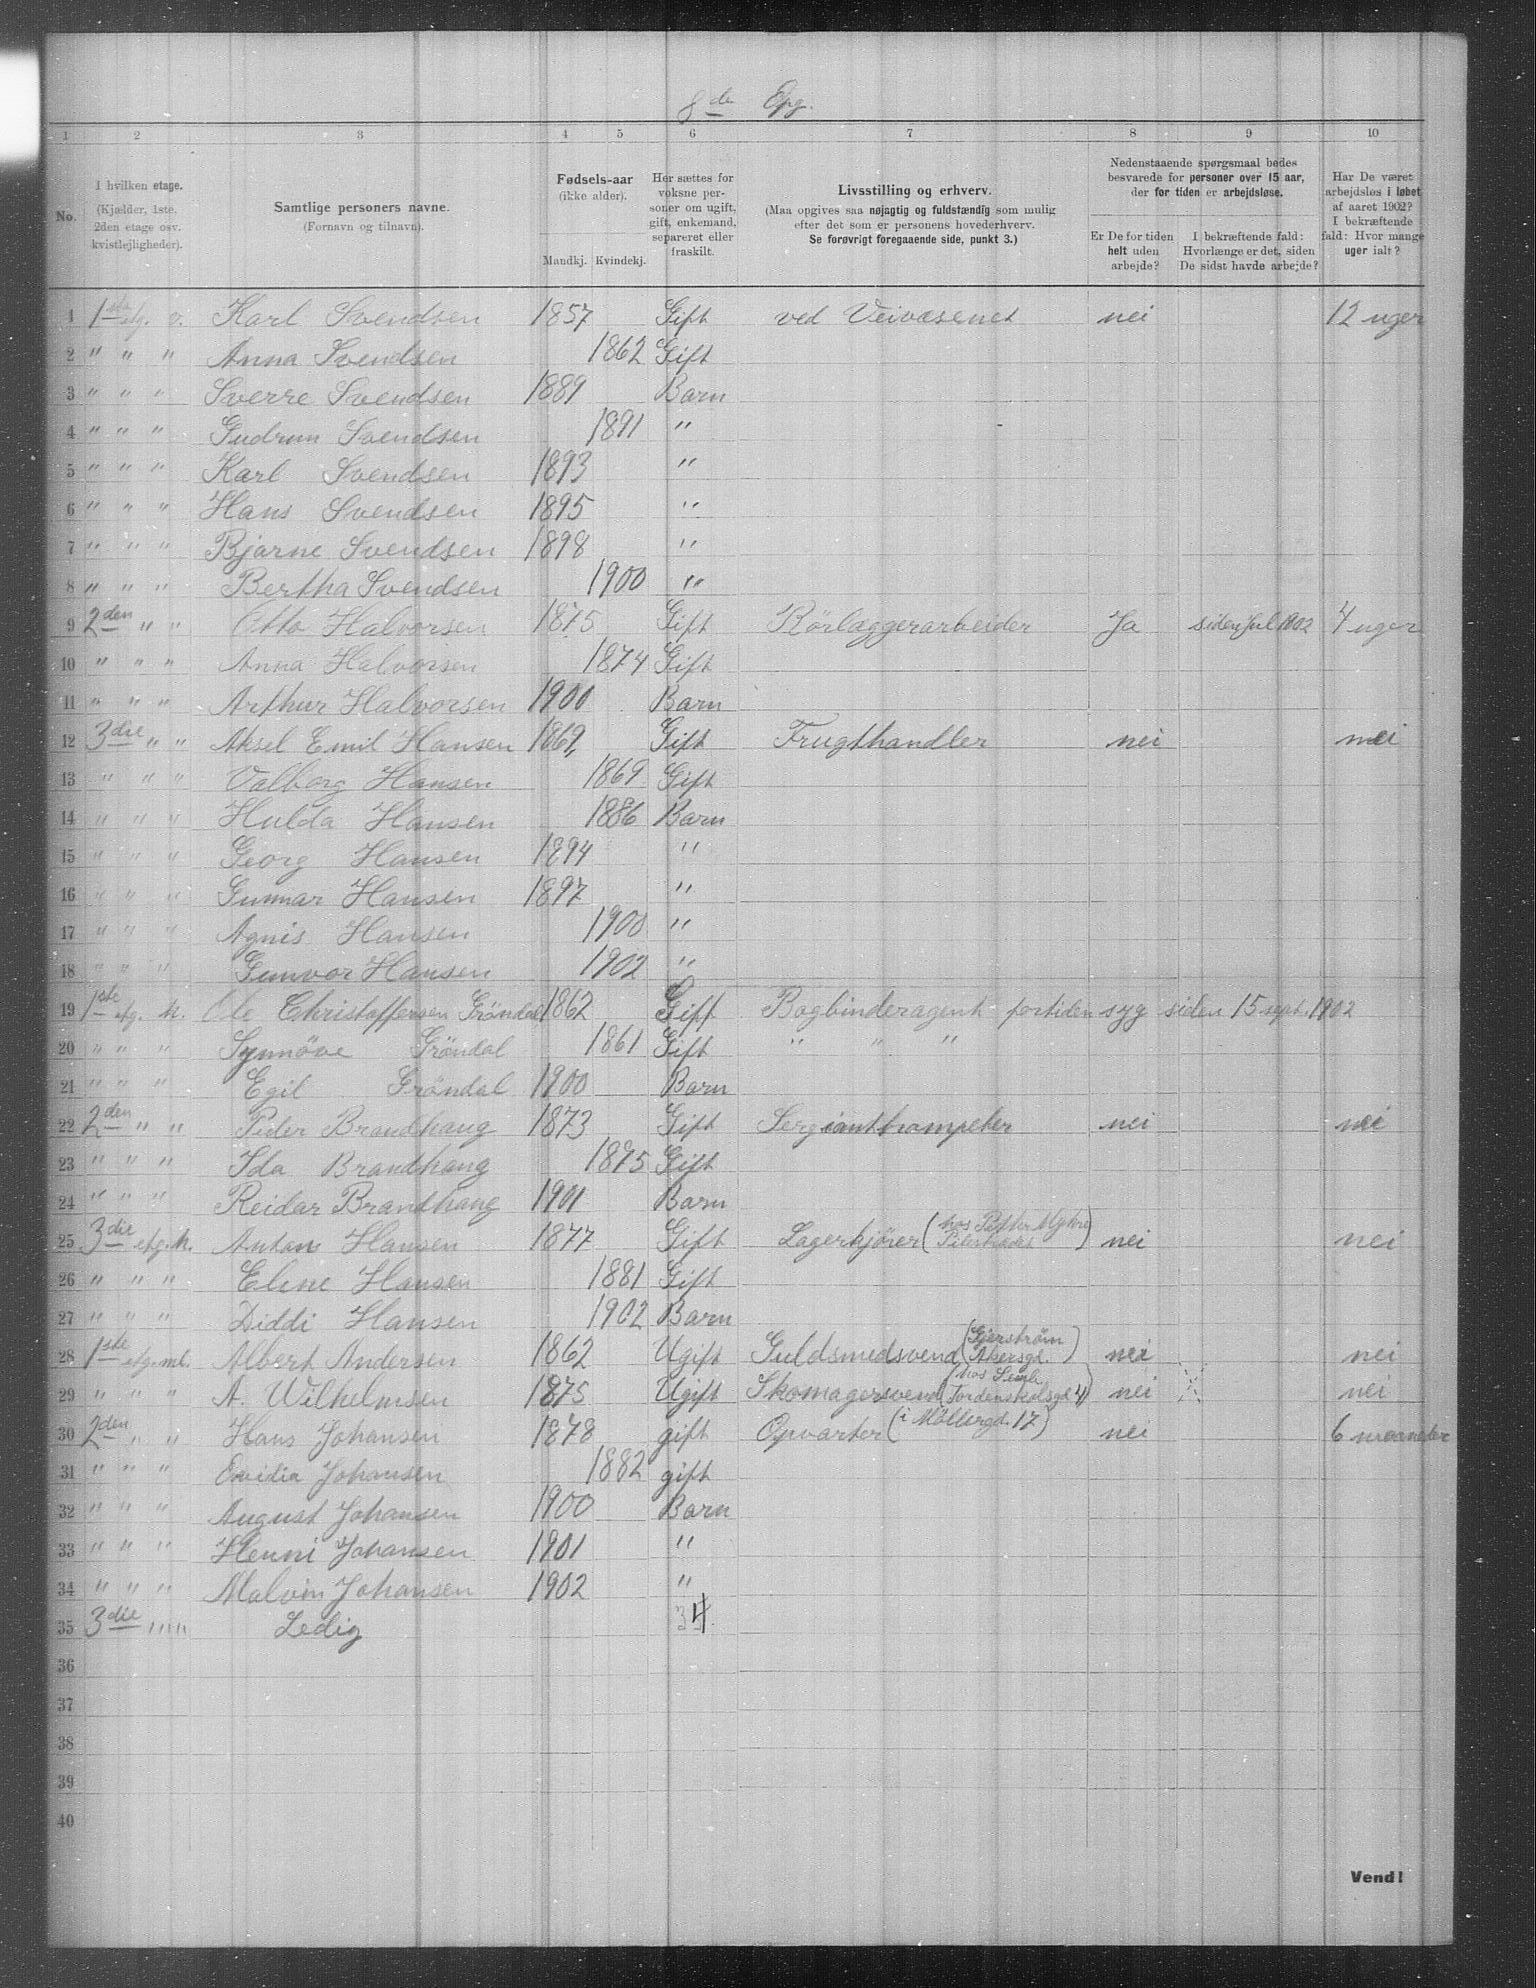 8de Opg.
1 2 3 4 5 6 7 8 9 10
No.
I hvilken etage. (Kjælder, 1ste, 2den etage osv. kvistlejligheder).
Samtlige personers navne. (Fornavn og tilnavn).
Fødsels-aar (ikke alder). Mandkj. Kvindekj.
Her sættes for voksne personer om ugift, gift, enkemand, separeret eller fraskilt.
Livsstilling og erhverv. (Maa opgives saa nøjagtig og fuldstændig som mulig efter det som er personens hovederhverv. Se forøvrigt foregaaende side, punkt 3.)
Nedenstaaende spørgsmaal bedes besvarede for personer over 15 aar, der for tiden er arbejdsløse.
Er De for tiden helt uden arbejde?
I bekræftende fald: Hvorlænge er det, siden De sidst havde arbejde?
Har De været arbejdsløs i løbet af aaret 1902? I bekræftende fald: Hvor mange uger ialt?
1 1ste etg. v. Karl Svendsen 1857 Gift ved Veivæsenet nei 12 uger
2 " " " Anna Svendsen 1862 Gift
3 " " " Sverre Svendsen 1889 Barn
4 " " " Gudrun Svendsen 1891 "
5 " " " Karl Svendsen 1893 "
6 " " " Hans Svendsen 1895 "
7 " " " Bjarne Svendsen 1898 "
8 " " " Bertha Svendsen 1900 "
9 2den " " Otto Halvorsen 1875 Gift Rörlæggerarbeider Ja siden Jul 1802 4 uger
10 " " " Anna Halvorsen 1874 Gift
11 " " " Arthur Halvorsen 1900 Barn
12 3die " " Aksel Emil Hansen 1869 Gift Frugthandler nei nei
13 " " " Valborg Hansen 1869 Gift
14 " " " Hulda Hansen 1886 Barn
15 " " " Georg Hansen 1894 "
16 " " " Gunnar Hansen 1897 "
17 " " " Agnis Hansen 1900 "
18 " " " Gunvor Hansen 1902 "
19 1ste etg. h. Ole Christoffersen Gröndal 1862 Gift Bogbinderagent fortiden syg siden 15 sept. 1902
20 " " " Synnöve Gröndal 1861 Gift " " "
21 " " " Egil Gröndal 1900 Barn
22 2den " " Peder Brandhaug 1873 Gift Sergianttrompeter nei nei
23 " " " Ida Brandhaug 1875 Gift
24 " " " Reidar Brandhaug 1901 Barn
25 3die etg. h. Anton Hansen 1877 Gift Lagerkjörer (hos Petter ) nei nei
26 " " " Eline Hansen 1881 Gift
27 " " " Diddi Hansen 1902 Barn
28 1ste etg. ml. Albert Andersen 1862 Ugift Guldsmedsvend (Gjerström Akersgd.) nei nei
29 " " " A. Wilhelmsen 1875 Ugift Skomagersvend (hos Tordenskolsgd 4) nei nei
30 2den " " Hans Johansen 1878 gift Opvarter (i Möllergd. 17) nei 6 maaneder
31 " " " Ovidia Johansen 1882 gift
32 " " " August Johansen 1900 Barn
33 " " " Henni Johansen 1901 "
34 " " " Malvin Johansen 1902 "
35 3die " " Ledig 34
36
37
38
39
40
Vend!